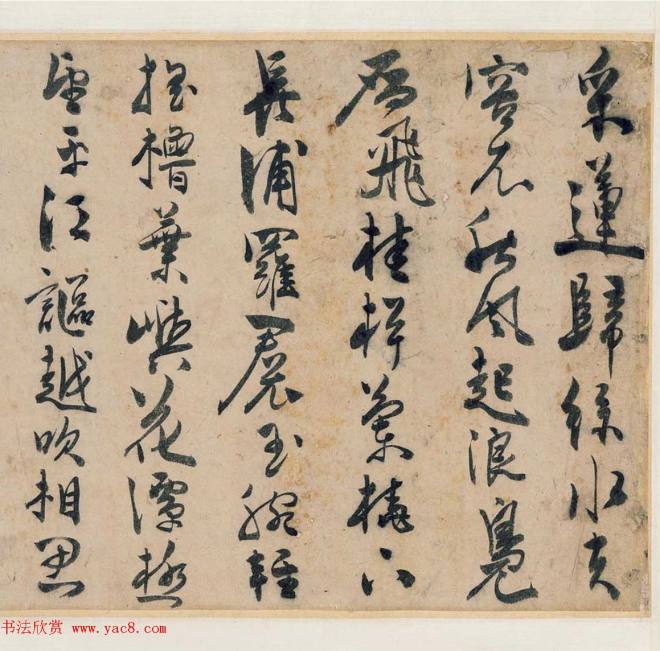 采蓮歸綠水芙
蓉衣秋風起浪鳧
雁飛桂棹蘭橈下
長浦羅裙玉腕輕
搖櫓葉嶼花潭極
望平江謳越吹相思
书法欣赏 www.yac8.com